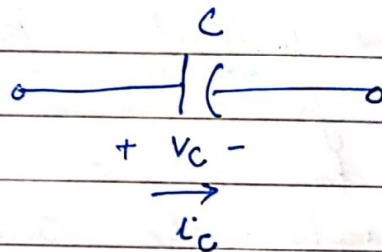 C
+ Vc -
ic